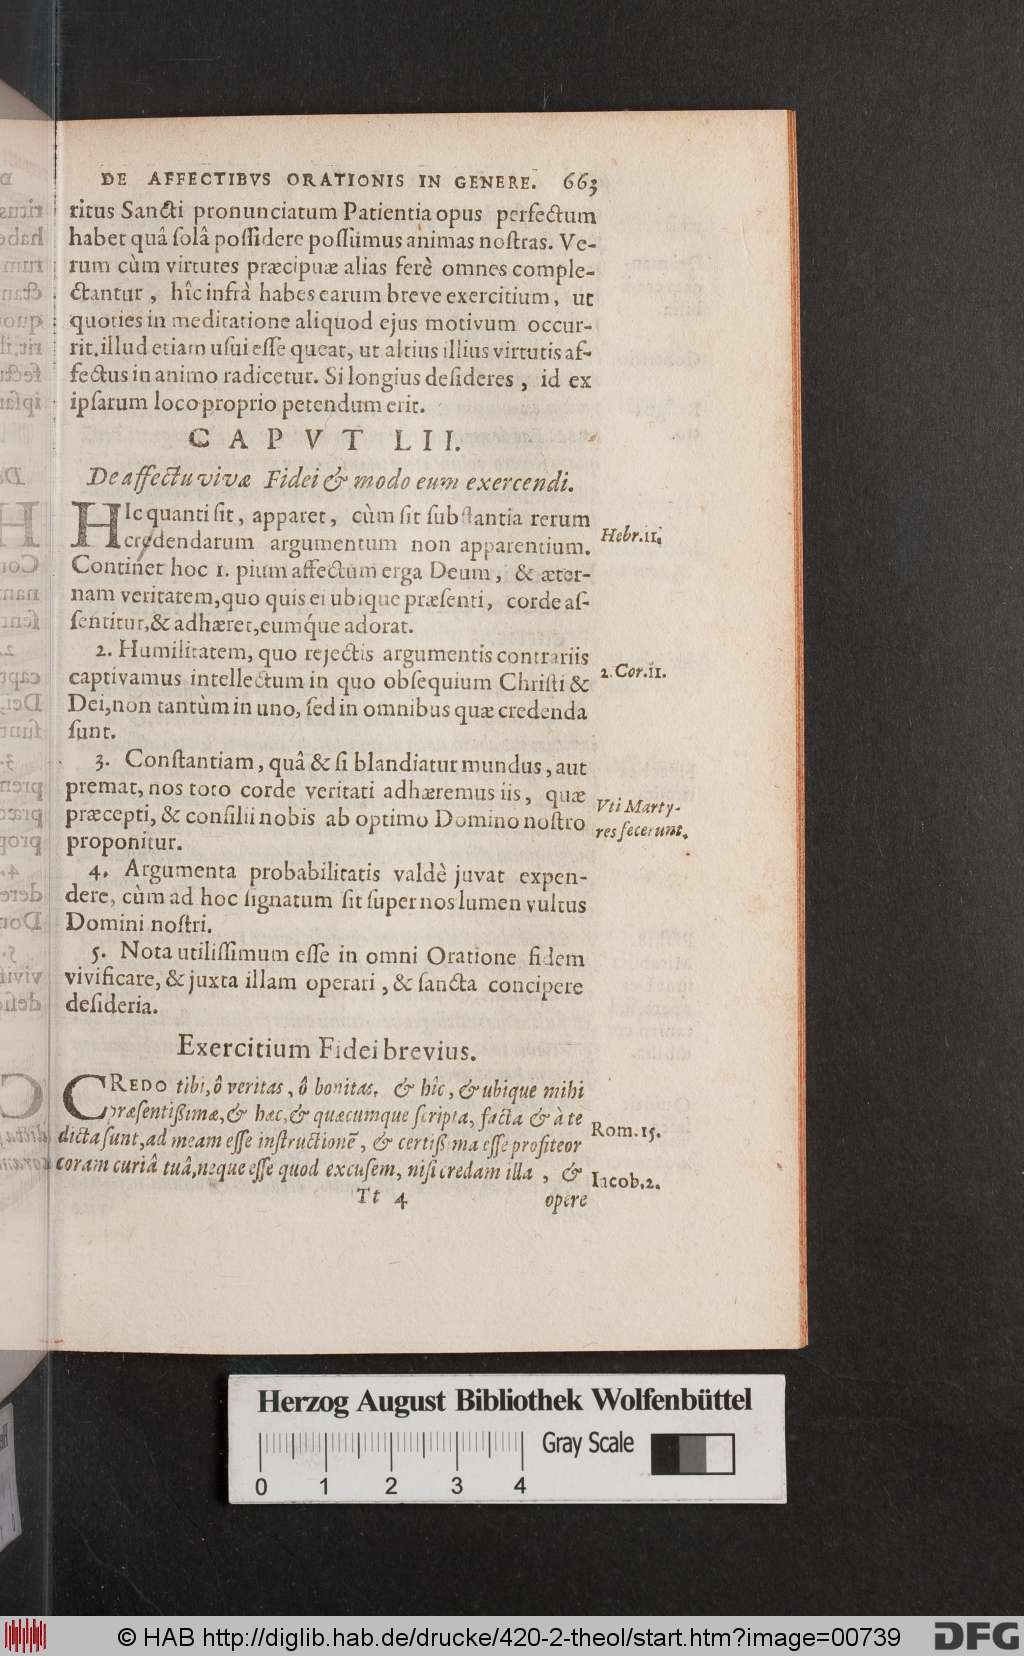 DE AFFECTIBVS ORATIONIS IN GENERE. 663
ritus Sancti pronunciatum Patientia opus perfectum
habet quâ solâ possidere possumus animas nostras. Ve-
rum cùm virtutes præcipuæ alias ferè omnes comple-
ctantur, hîc infrà habes earum breve exercitium, ut
quoties in meditatione aliquod ejus motivum occur-
rit, illud etiam usui esse queat, ut altius illius virtutis af-
fectus in animo radicetur. Si longius desideres, id ex
ipsarum loco proprio petendum erit.
CAPVT LII.
De affectu vivæ Fidei & modo eum exercendi.
HIc quanti sit, apparet, cùm sit substantia rerum
credendarum argumentum non apparentium. Hebr.11.
Continet hoc 1. pium affectum erga Deum, & æter-
nam veritatem, quo quis ei ubique præsenti, corde as-
sentitur, & adhæret, eumq́ue adorat.
2. Humilitatem, quo rejectis argumentis contrariis
captivamus intellectum in quo obsequium Christi & 2.Cor.11.
Dei, non tantùm in uno, sed in omnibus quæ credenda
sunt.
3. Constantiam, quâ & si blandiatur mundus, aut
premat, nos toto corde veritati adhæremus iis, quæ Vti Marty-
præcepti, & consilii nobis ab optimo Domino nostro res fecerunt.
proponitur.
4. Argumenta probabilitatis valdè juvat expen-
dere, cùm ad hoc signatum sit super nos lumen vultus
Domini nostri.
5. Nota utilissimum esse in omni Oratione fidem
vivificare, & juxta illam operari, & sancta concipere
desideria.
Exercitium Fidei brevius.
CREDO tibi, ô veritas, ô bonitas, & hîc, & ubique mihi
præsentißima, & hæc, & quæcumque scripta, facta & à te
dicta sunt, ad meam esse instructionē, & certißima esse profiteor Rom.15.
coram curiâ tuâ, neque esse quod excusem, nisi credam illa, & Iacob.2.
Tt 4 opere
Herzog August Bibliothek Wolfenbüttel
Gray Scale
0 1 2 3 4
© HAB http://diglib.hab.de/drucke/420-2-theol/start.htm?image=00739
DFG